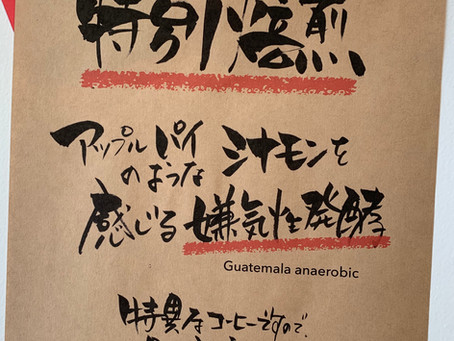 特別焙煎
アップルパイ
のような シナモンを
感じる 嫌気性発酵
Guatemala anaerobic
特異なコーヒーですので、